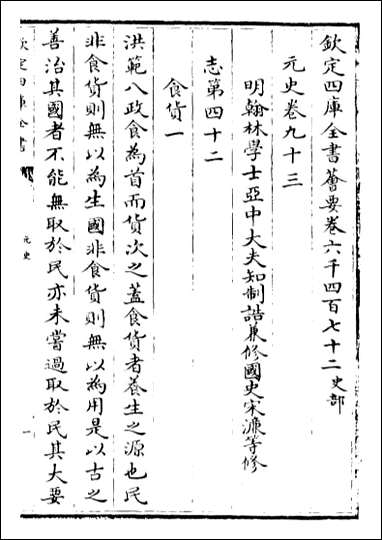 欽定四庫全書薈要卷六千四百七十二 史部
元史卷九十三
明翰林學士亞中大夫知制誥兼修國史宋濂等修
志第四十二
食貨一
洪範八政食為首而貨次之蓋食貨者養生之源也民
非食貨則無以為生國非食貨則無以為用是以古之
善治其國者不能無取於民亦未嘗過取於民其大要
欽定四庫全書
元史
一